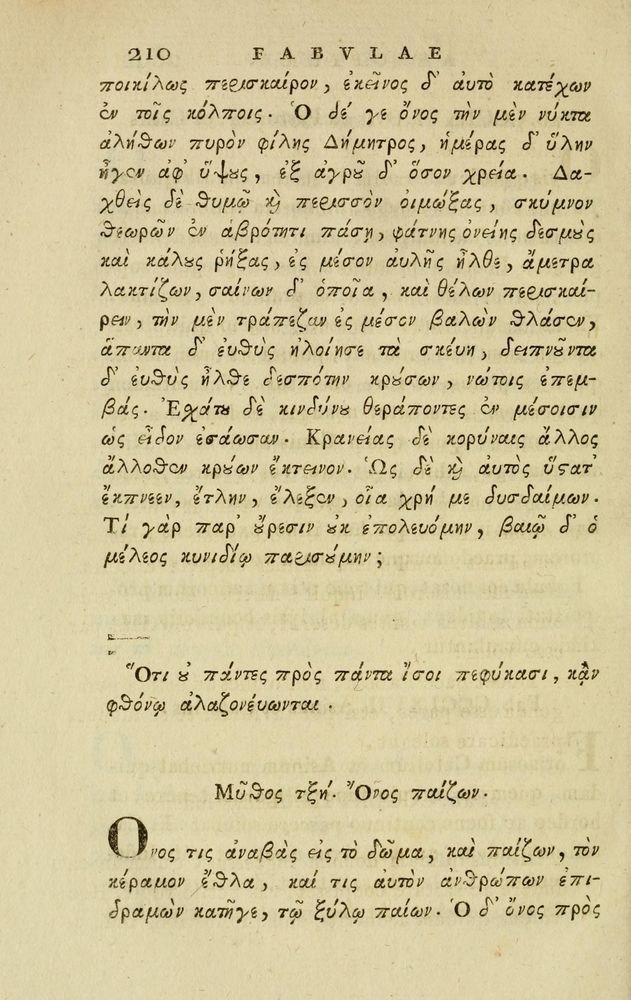 210 FABVLAE
ποικίλως περισκαίρον, ἐκεῖνος δ' αυτὸ κατέχων
ἐν τοῖς κόλποις. Ὁ δέ γε ὄνος τὴν μὲν νύκτα
ἀλήθων πυρὸν φίλης Δήμητρος, ἡμέρας δ' ὕλην
ἦγεν ἀφ' ὕψους, ἐξ ἀγροῦ δ' ὅσον χρεία. Δα-
χθεὶς δὲ θυμῷ καὶ περισσὸν οιμώξας, σκύμνον
θεωρῶν ἐν ἁβρότητι πάσῃ, φάτνης ὀνείης δεσμοὺς
καὶ κάλους ῥήξας, ἐς μέσον αυλῆς ἦλθε, ἄμετρα
λακτίζων, σαίνων δ' ὁποῖα, καὶ θέλων περισκαί-
ρειν, τὴν μὲν τράπεζαν ἐς μέσον βαλὼν θλάσεν,
ἅπαντα δ' ἐυθὺς ἠλοίησε τὰ σκέυη, δειπνοῦντα
δ' ἐυθὺς ἦλθε δεσπότην κρούσων, νώτοις ἐπεμ-
βάς. Ἐσχάτου δὲ κινδύνου θεράποντες ἐν μέσοισιν
ὡς εἶδον ἐσάωσαν. Κρανείας δὲ κορύναις ἄλλος
ἄλλοθεν κρούων ἔκτεινον. Ὡς δὲ καὶ αυτὸς ὕστατ'
ἔκπνεεν, ἔτλην, ἔλεξεν, οἷα χρή με δυσδαίμων.
Τί γὰρ παρ' ὄυρεσιν ὀυκ ἐπολευόμην, βαιῷ δ' ὁ
μέλεος κυνιδίῳ παρισούμην;
Ὅτι ὀυ πάντες πρὸς πάντα ἴσοι πεφύκασι, κᾂν
φθόνῳ ἀλαζονέυωνται.
Μῦθος τξή. Ὄνος παίζων.
Ὄνος τις ἀναβὰς εἰς τὸ δῶμα, καὶ παίζων, τὸν
κέραμον ἔθλα, καί τις αυτὸν ἀνθρώπων ἐπι-
δραμὼν κατῆγε, τῷ ξύλῳ παίων. Ὁ δ' ὄνος πρὸς